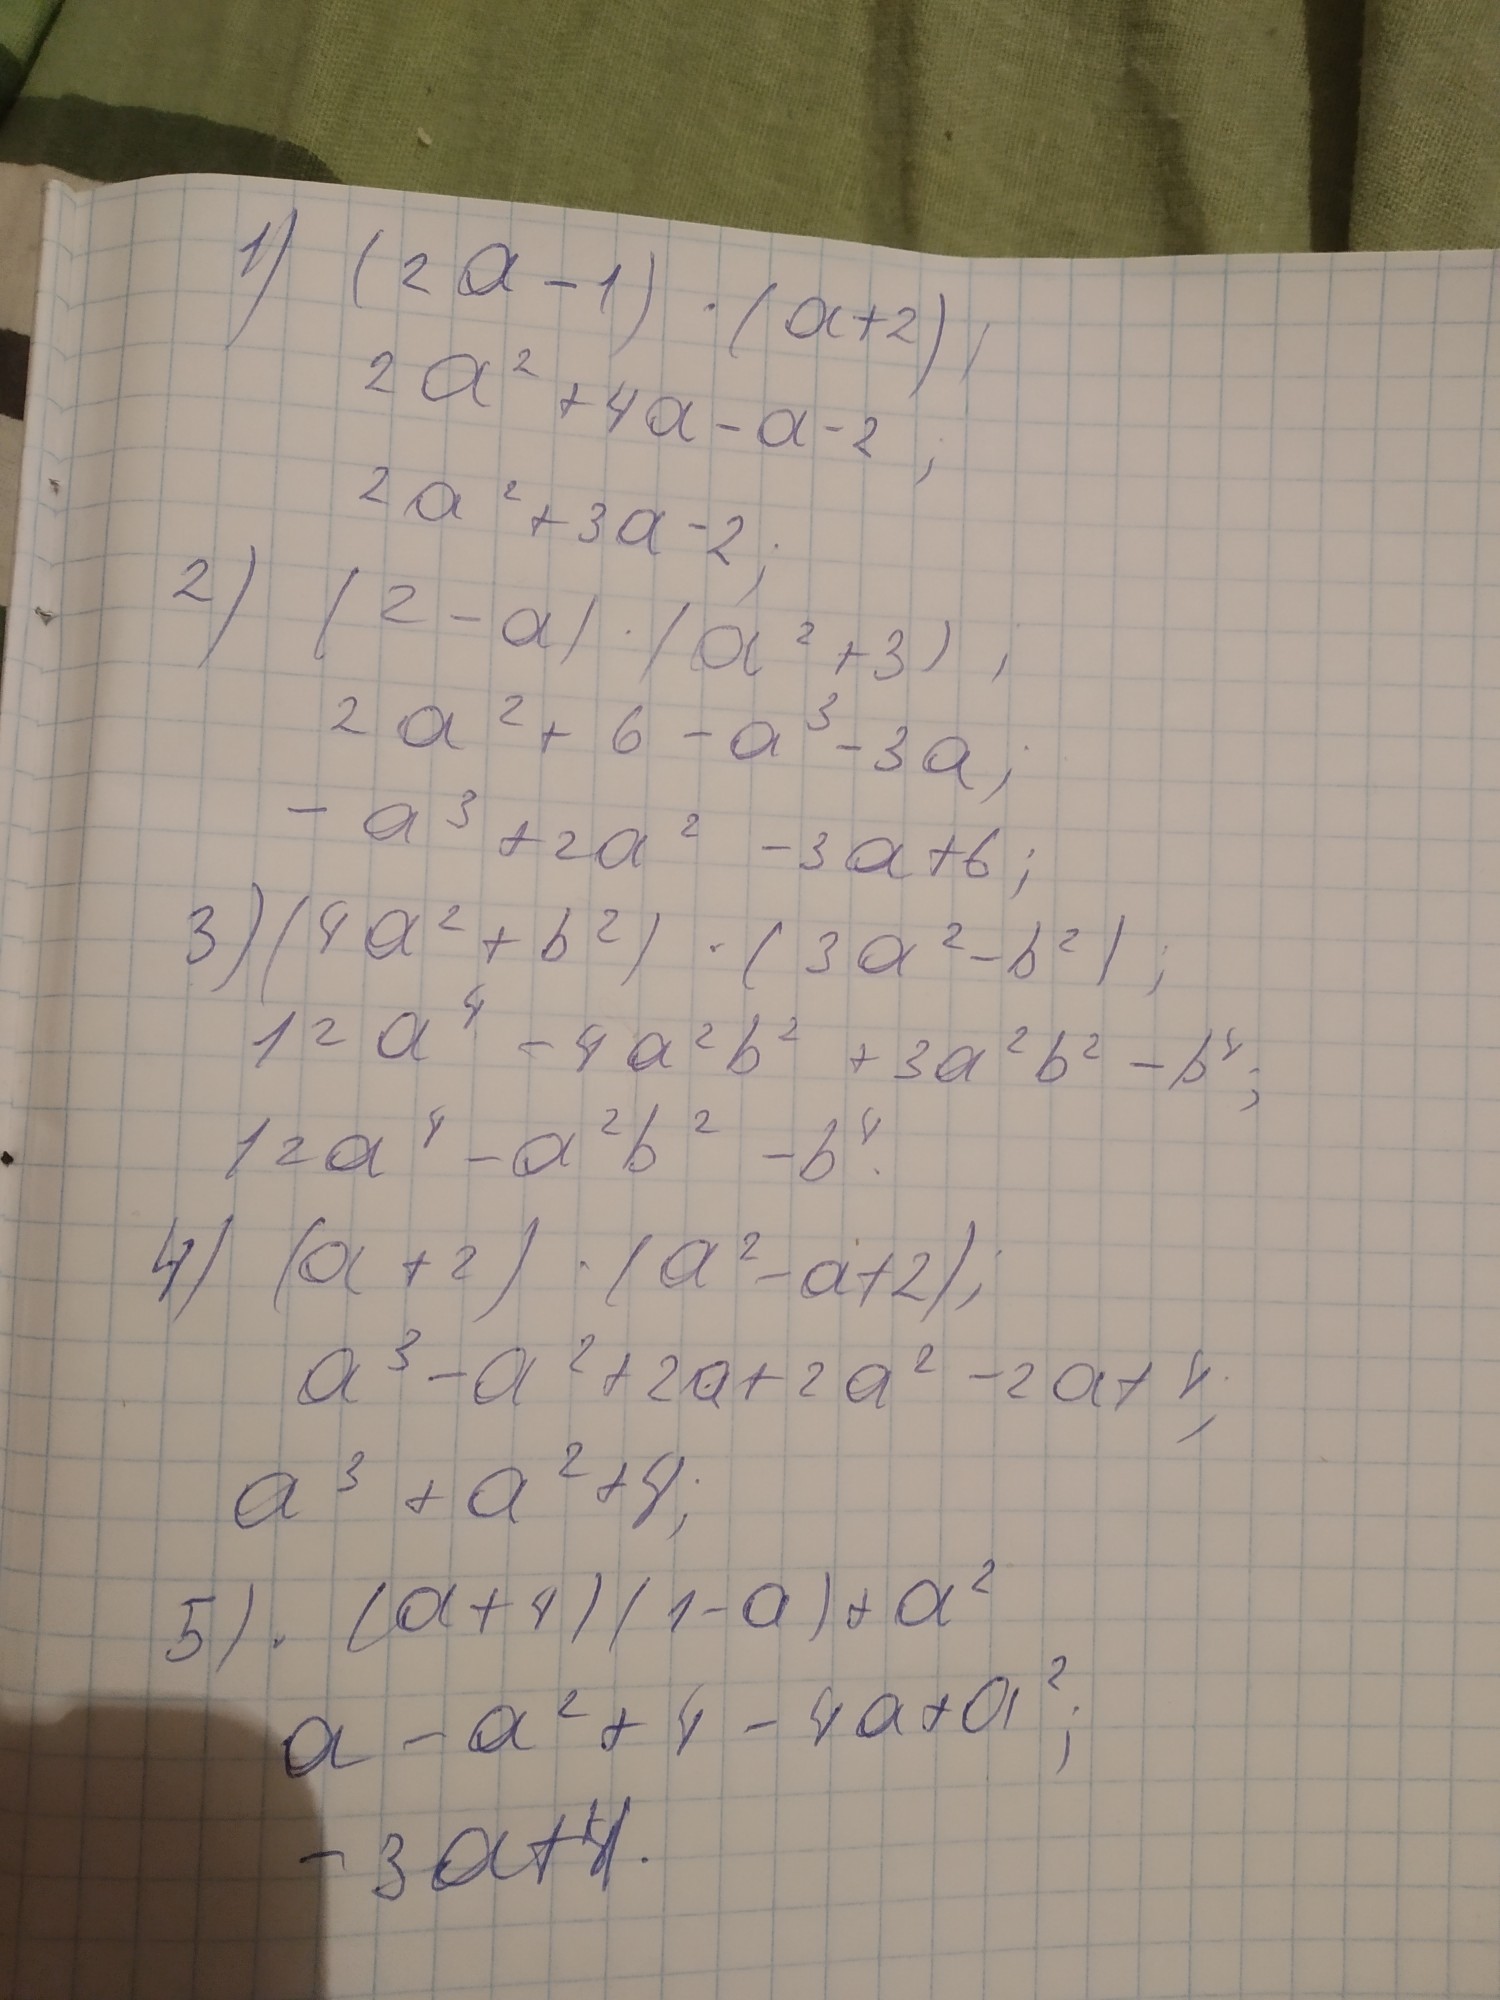 1) (2a-1)·(a+2);
2a²+4a-a-2;
2a²+3a-2;
2) (2-a)·(a²+3);
2a²+6-a³-3a;
-a³+2a²-3a+6;
3) (4a²+b²)·(3a²-b²);
12a⁴-4a²b²+3a²b²-b⁴;
12a⁴-a²b²-b⁴.
4) (a+2)·(a²-a+2);
a³-a²+2a+2a²-2a+4;
a³+a²+4;
5). (a+4)(1-a)+a²
a-a²+4-4a+a²;
-3a+4.